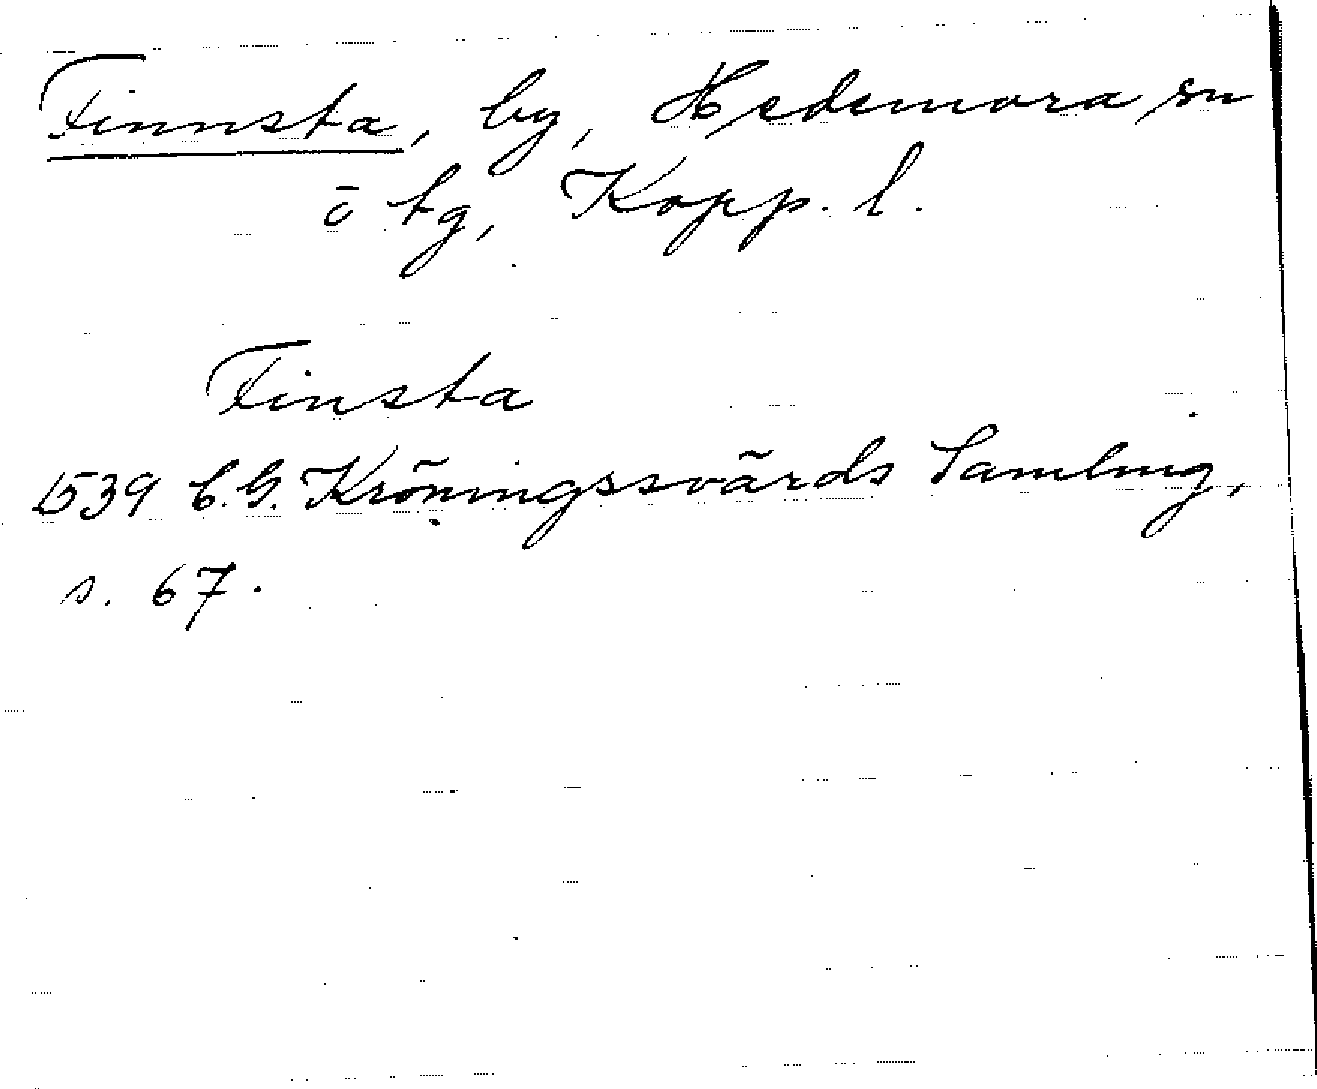 Finnsta, by, Hedemora sn
o tg, Kopp. l.
Finsta
1539 C.G. Kröningssvärds Samling,
s. 67.